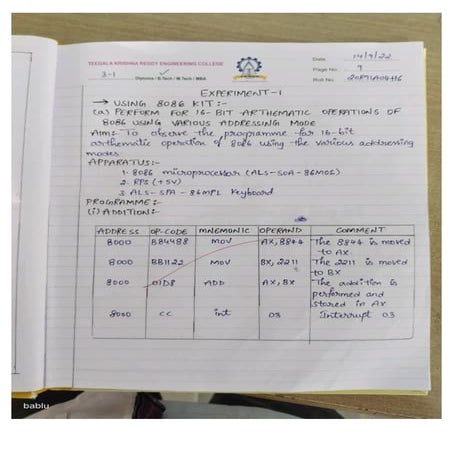 TEEGALA KRISHNA REDDY ENGINEERING COLLEGE
3-1
Diploma / B.Tech / M.Tech / MBA
Date 14/9/22
Page No. 9
Roll No.
EXPERIMENT-1
→ USING 8086 KIT:-
(a) PERFORM FOR 16-BIT ARTHEMATIC OPERATIONS OF
8086 USING VARIOUS ADDRESSING MODE
Aim: To observe the programme for 16-bit
arthematic operation of 8086 using the various addressing
modes
APPARATUS:-
1. 8086 microprocessor (ALS-SDA-86MOS)
2. RPS (+5V)
3. ALS-SPA-86MPL Keyboard
PROGRAMME:-
(i) ADDITION:-
ADDRESS OP-CODE MNEMONIC OPERAND COMMENT
8000 B84488 MOV AX, 8844 The 8844 is moved
to AX
8000 BB1122 MOV BX, 2211 The 2211 is moved
to BX
8000 01D8 ADD AX, BX The addition is
performed and
stored in AX
8000 CC int 03 Interrupt 03
bablu